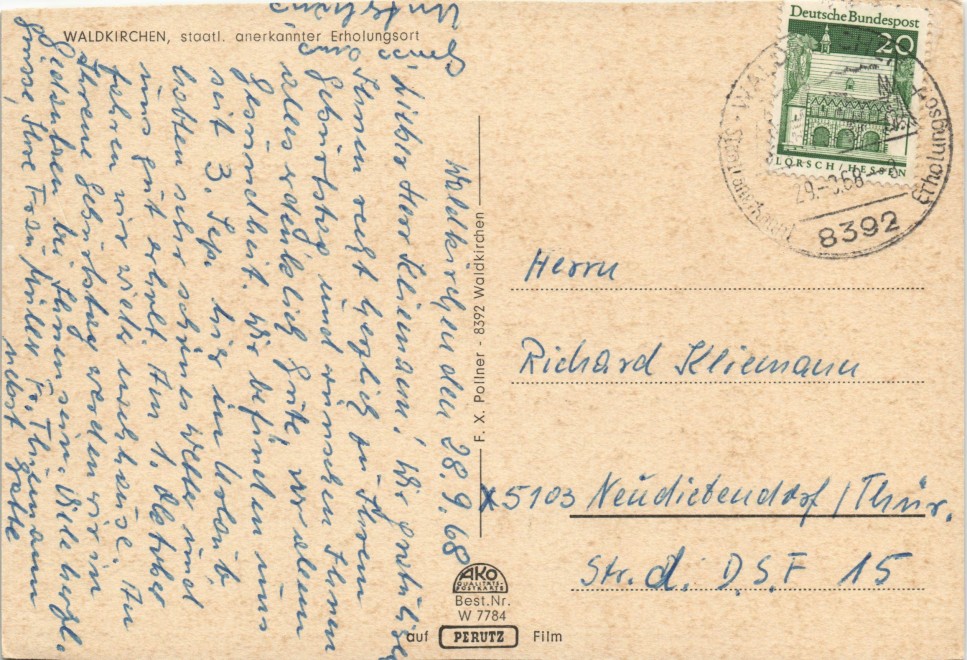 WALDKIRCHEN, staatl. anerkannter Erholungsort
Waldkirchen den 28.9.68
Lieber Herr Kliemann! Wir gratulieren
Ihnen recht herzlich zu Ihrem
Geburtstag und wünschen Ihnen
alles erdenklich Gute vor allem
Gesundheit. Wir befinden uns
seit 3. Sep. hier im Urlaub
hatten sehr schönes Wetter und
uns gut erholt. Am 1. Oktober
fahren wir wieder nach hause. An
Ihrem Geburtstag werden wir in
Gedanken bei Ihnen sein. Viele herzl.
Grüsse, Ihre Frau Fr. Thiemann
nebst Gatte
F. X. Pollner - 8392 Waldkirchen
AKO
QUALITÄTS-
POSTKARTE
Best.Nr.
W 7784
auf PERUTZ Film
Deutsche Bundespost
20
LORSCH/HESSEN
29.-9.68
8392
Erholungsort
Herrn
Richard Kliemann
X5103 Neudietendorf/Thür.
Str. d. D.S.F 15